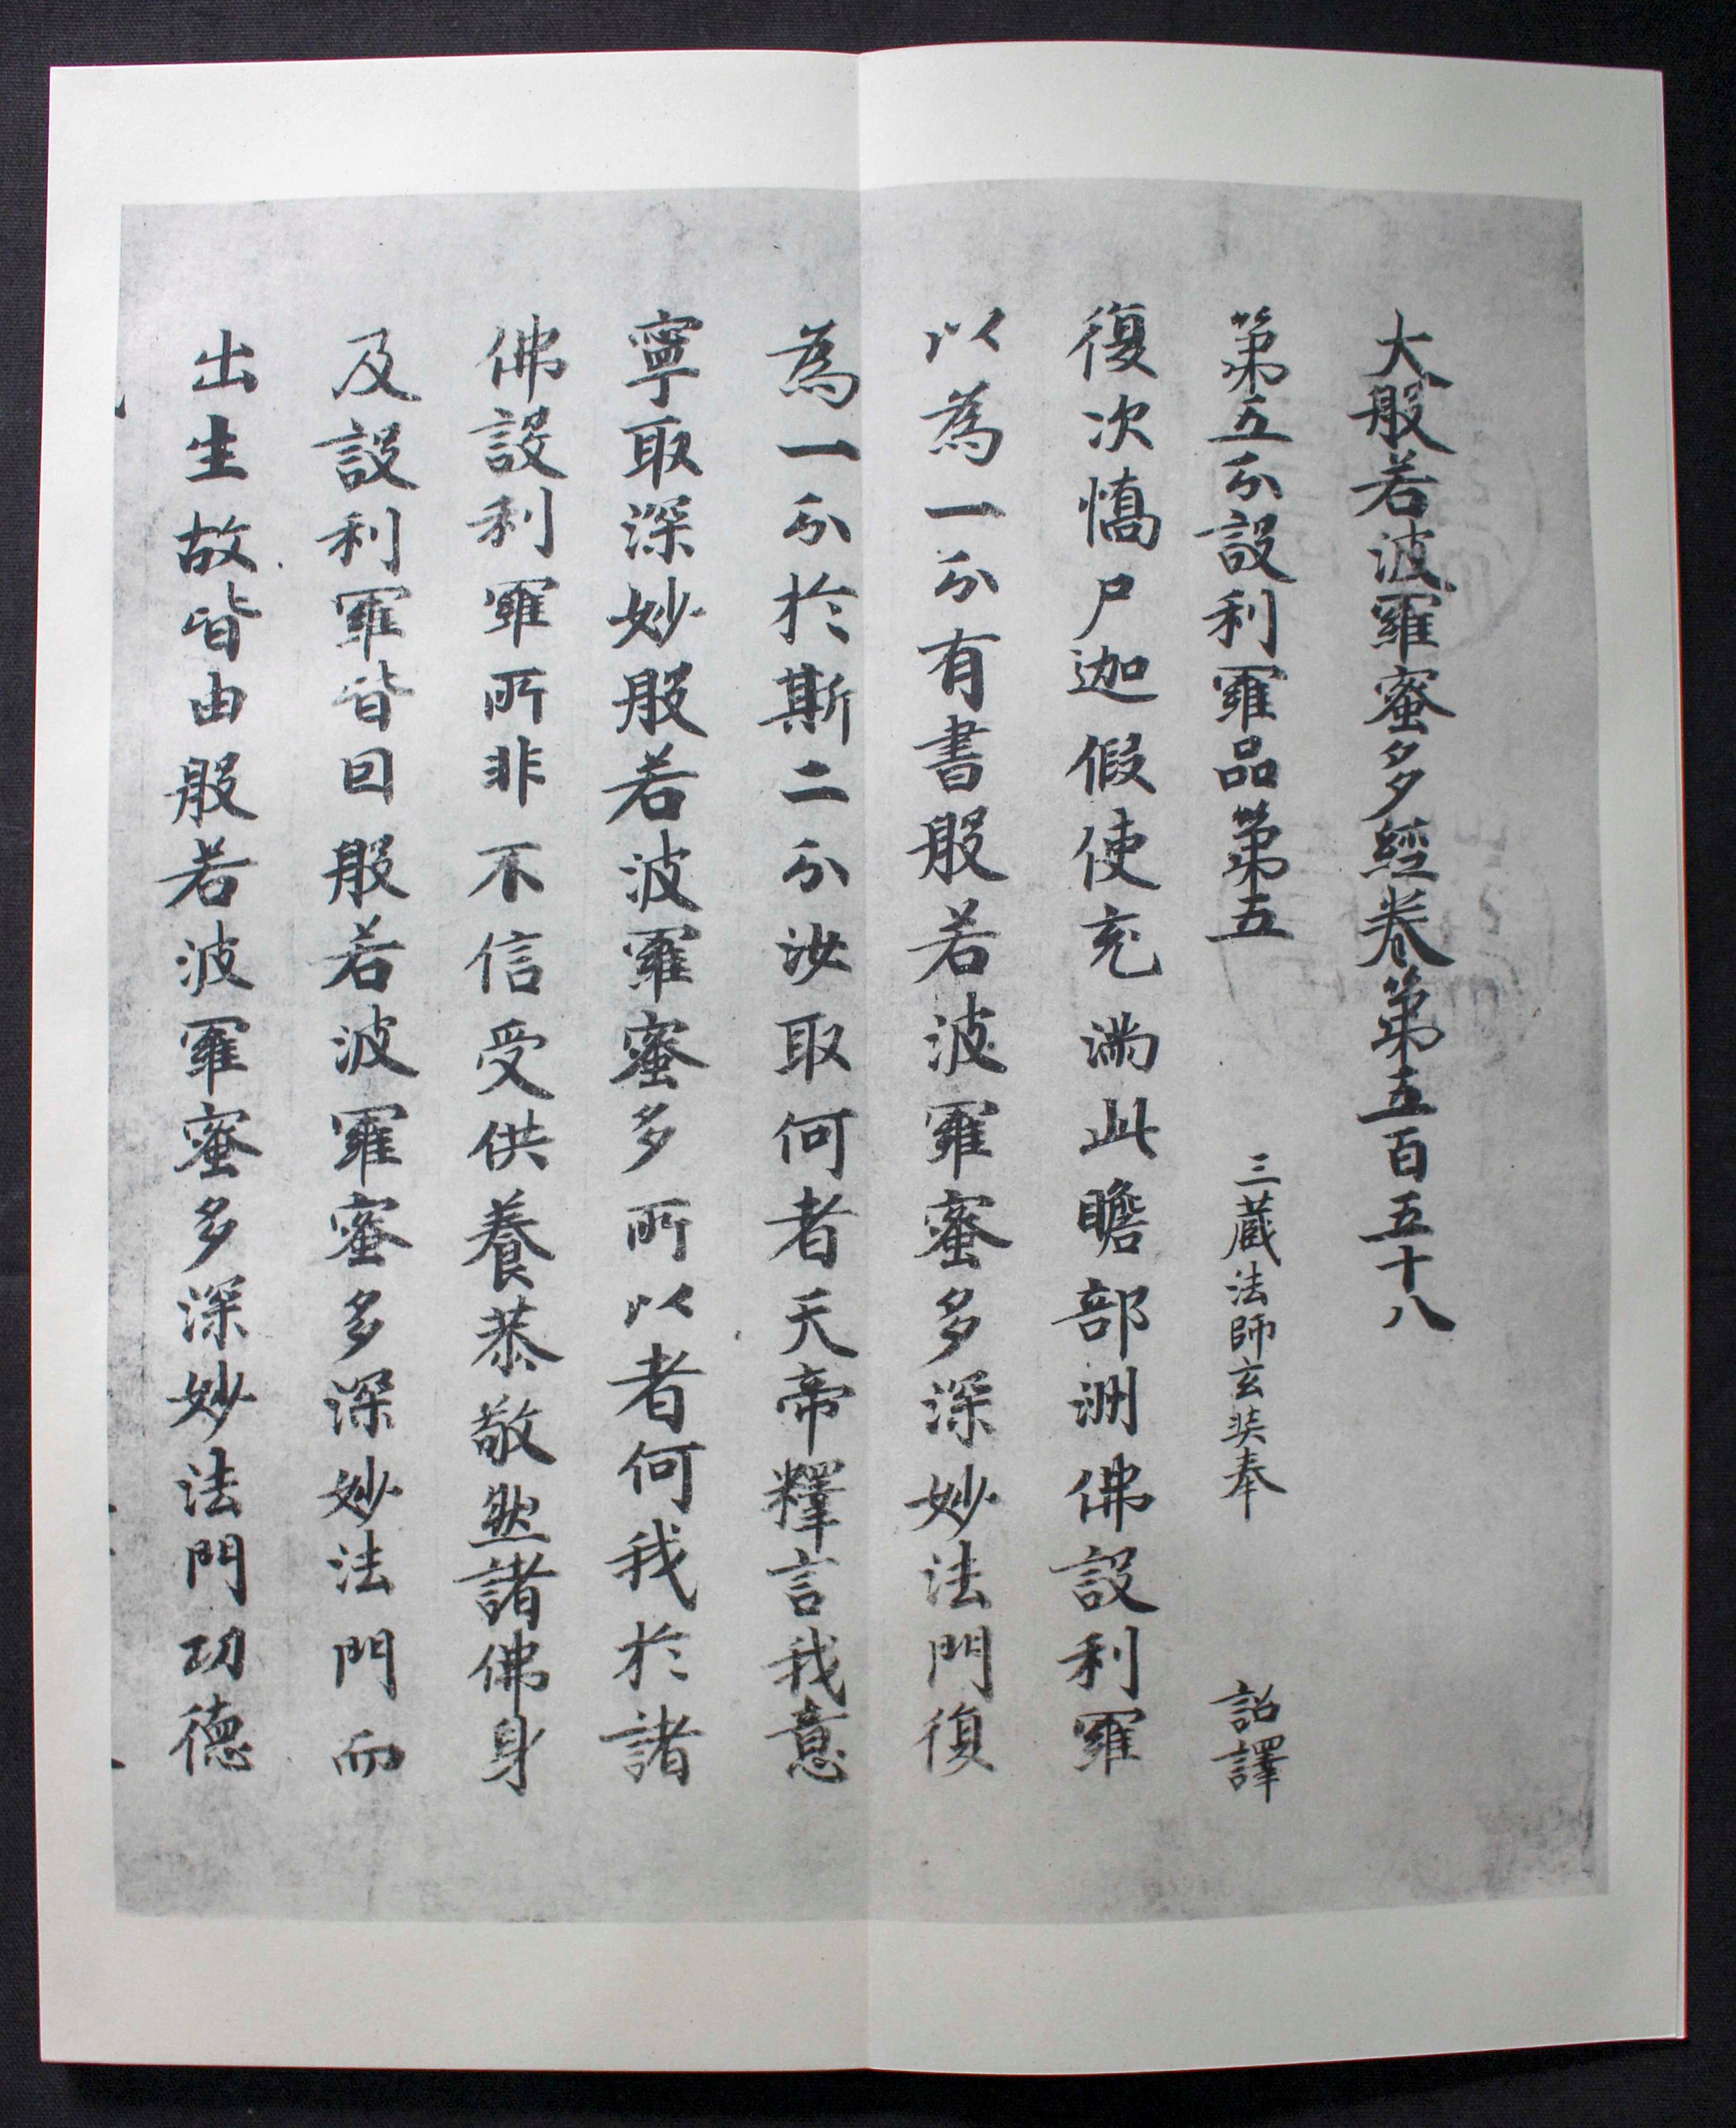 大般若波羅蜜多經卷第五百五十八
第五分設利羅品第五　三藏法師玄奘奉　詔譯
復次憍尸迦假使充滿此贍部洲佛設利羅
以為一分有書般若波羅蜜多深妙法門復
為一分於斯二分汝取何者天帝釋言我意
寧取深妙般若波羅蜜多所以者何我於諸
佛設利羅所非不信受供養恭敬然諸佛身
及設利羅皆因般若波羅蜜多深妙法門而
出生故皆由般若波羅蜜多深妙法門功德